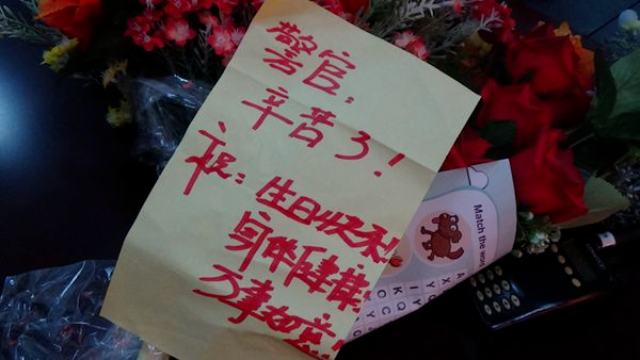 警官，
辛苦了！
祝：生日快乐！
身体健康
万事如意！
Match the